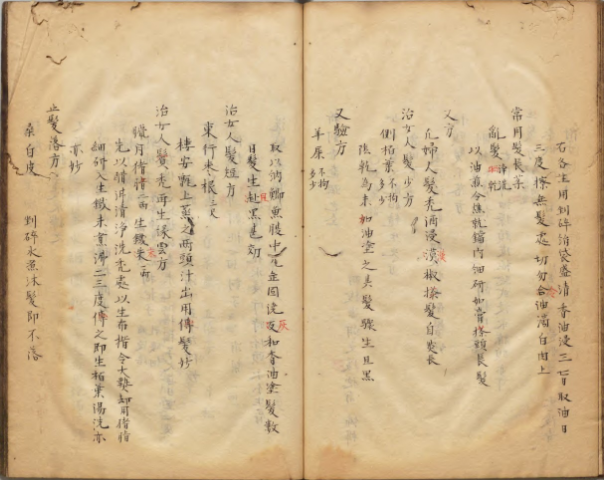 右各生用剉碎請袋盛清香油浸三七日取油日
三度搽無髮處切勿令油滴自肉上
常用髮長
亂髮 淨洗 日乾
以油煎令焦乾鐺內細研如膏搽頭長髮
又方
凡婦人髮禿酒浸漢椒搽髮自然長
治女人髮少方
側柏葉 不拘多少
陰乾為末如油塗之其髮驟生且黑
又驗方
羊屎 不拘多少
取以納鯽魚腹中瓦缶固燒灰和香油塗髮數
日髮生赴黑甚効
治女人髮短方
東行棗根三尺
橫安甑上蒸之兩頭汁出用傅髮妙
治女人髮禿再生
臘月
先以溫清淨洗禿處以生布揩令大熱却用猪
細研入生鐵末煮沸二三度傅之即生柏葉湯洗亦
亦妙
止髮落方
桑白皮 剉碎水煮沐髮即不落